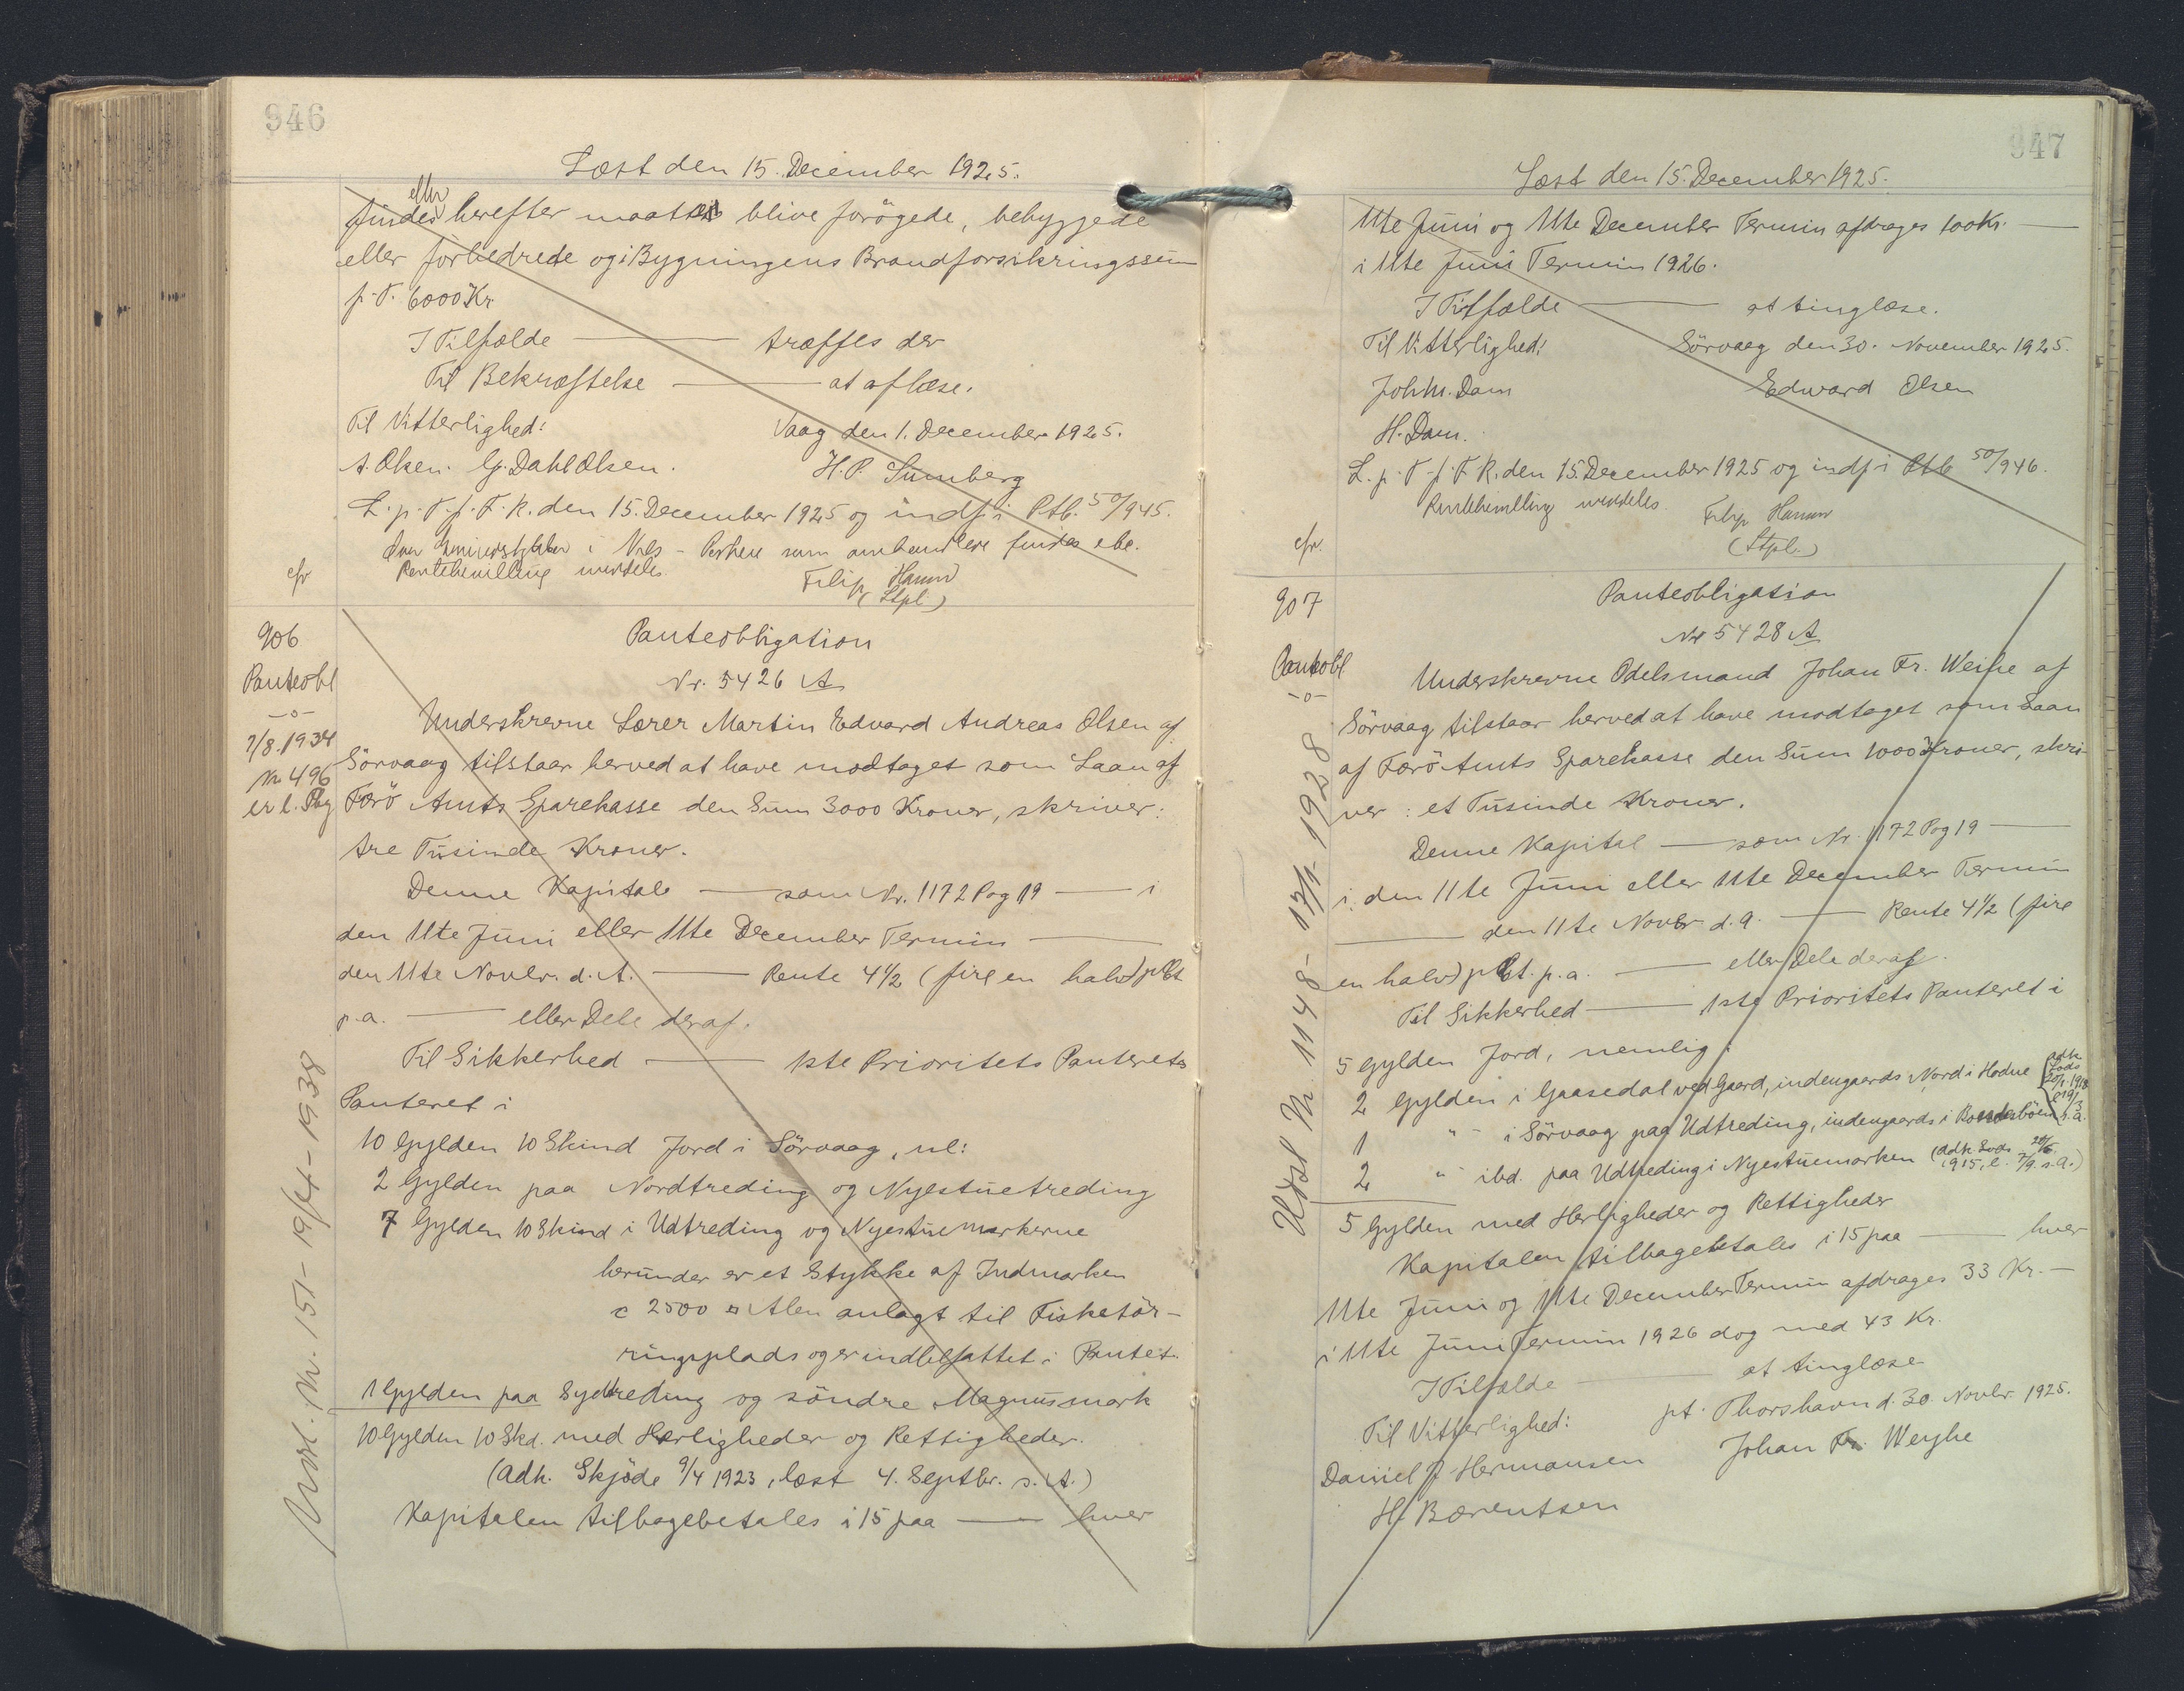 946
Læst den 15. December 1925.
findes eller herefter maatte blive forögede, bebyggede
eller forbedrede og i Bygningens Brandforsikringssum
p.T. 6000 Kr
I Tilfælde — træffes der
Til Bekræftelse — at aflæse.
Til Vitterlighed: Vaag den 1. December 1925.
A. Olsen. G. Dahl Olsen. H.P. Sumberg
L. p. T. f. F. R. den 15. December 1925 og indf. i Ptb. 50/945.
i Vaag findes ikke.
Rentebevilling meddeles Filip Hansen
cfr (Stpl.)
906
Panteobl
-o-
7/8.1934
Nr 496
er l. Pag
Udsl. Nr. 151 - 19/4 - 1938
Panteobligation
Nr. 5426 A
Underskrevne Lærer Martin Edvard Andreas Olsen af
Sörvaag tilstaar herved at have modtaget som Laan af
Færö Amts Sparekasse den Sum 3000 Kroner, skriver:
tre Tusinde Kroner.
Denne Kapitale — som Nr. 1172 Pag 19 — i
den 11te Juni eller 11te December Termin —
den 11te Novbr. d. A. — Rente 4½ (fire en halv) pCt
p.a. — eller Dele deraf.
Til Sikkerhed — 1ste Prioritets Panterets
Panteret i
10 Gylden 10 Skind Jord i Sörvaag, nl:
2 Gylden paa Nordtreding og Nylstuetreding
7 Gylden 10 Skind i Udtreding og Nyestuemarkerne
herunder er et Stykke af Indmarken
c 2500 □ Alen anlagt til Fisketör-
ringsplads og er indbefattet i Pantet.
1 Gylden paa Sydtreding og söndre Magnusmark
10 Gylden 10 Skd. med Herligheder og Rettigheder.
(Adk. Skjöde 9/4 1923, læst 4. Septbr. s. A.)
Kapitalen tilbagebetales i 15 paa — hver
947
Læst den 15. December 1925.
11te Juni og 11te December Termin afdrages 100 Kr. —
i 11te Juni Termin 1926.
I Tilfælde — at tinglæse.
Til Vitterlighed: Sörvaag den 30. November 1925.
Johs. Dam Edward Olsen
H. Dam.
L. p. T. f. F. R. den 15. December 1925 og indf. i Ptb. 50/946.
Rentebevilling meddeles. Filip Hansen
cfr. (Stpl.)
907
Panteobl
-o-
Udsl Nr. 1148 - 17/1 1928
Panteobligation
Nr 5428 A
Underskrevne Odelsmand Johan Fr. Weihe af
Sörvaag tilstaar herved at have modtaget som Laan
af Færö Amts Sparekasse den Sum 1000 Kroner, skri-
ver: et Tusinde Kroner.
Denne Kapital — som Nr. 1172 Pag 19 —
i den 11te Juni eller 11te December Termin
— den 11te Novbr d. A. — Rente 4½ (fire
en halv) pCt. p.a. — eller Dele deraf.
Til Sikkerhed — 1ste Prioritets Panteret i
5 Gylden Jord, nemlig:
2 Gylden i Gaasedal ved Gaard, indengaards Nord i Hedne (adk Lods
1 " i Sörvaag paa Udtreding, indengaards i s.a.
2 " ibd. paa Udtreding i Nyestuemarken (Adk. Lods 1915, l. 7/9. s.a.)
5 Gylden med Herligheder og Rettigheder
Kapitalen tilbagebetales i 15 paa — hver
11te Juni og 11te December Termin afdrages 33 Kr. —
i 11te Juni Termin 1926 dog med 43 Kr.
I Tilfælde — at tinglæse
Til Vitterlighed: pt. Thorshavn d. 30. Novbr. 1925.
Daniel J. Hermansen Johan Fr. Weyhe
H. Bærentsen